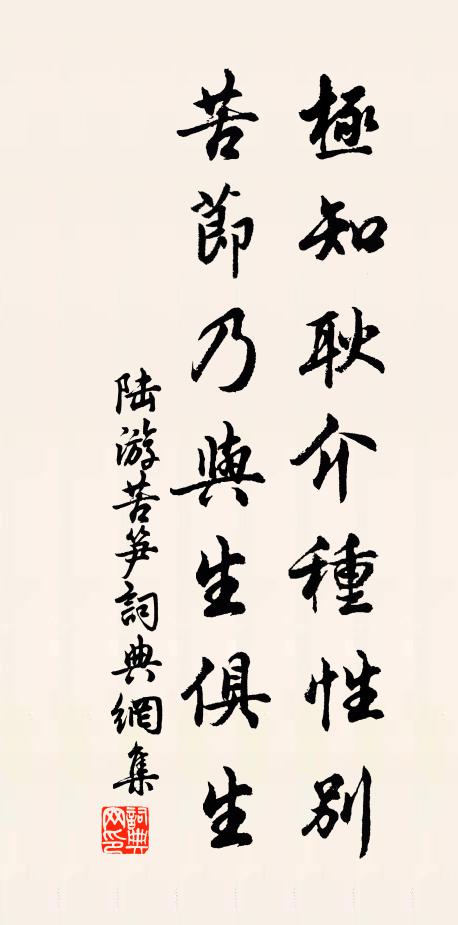 極知耿介種性別
苦節乃與生俱生
陸游苦笋詞典網集
詞典网印